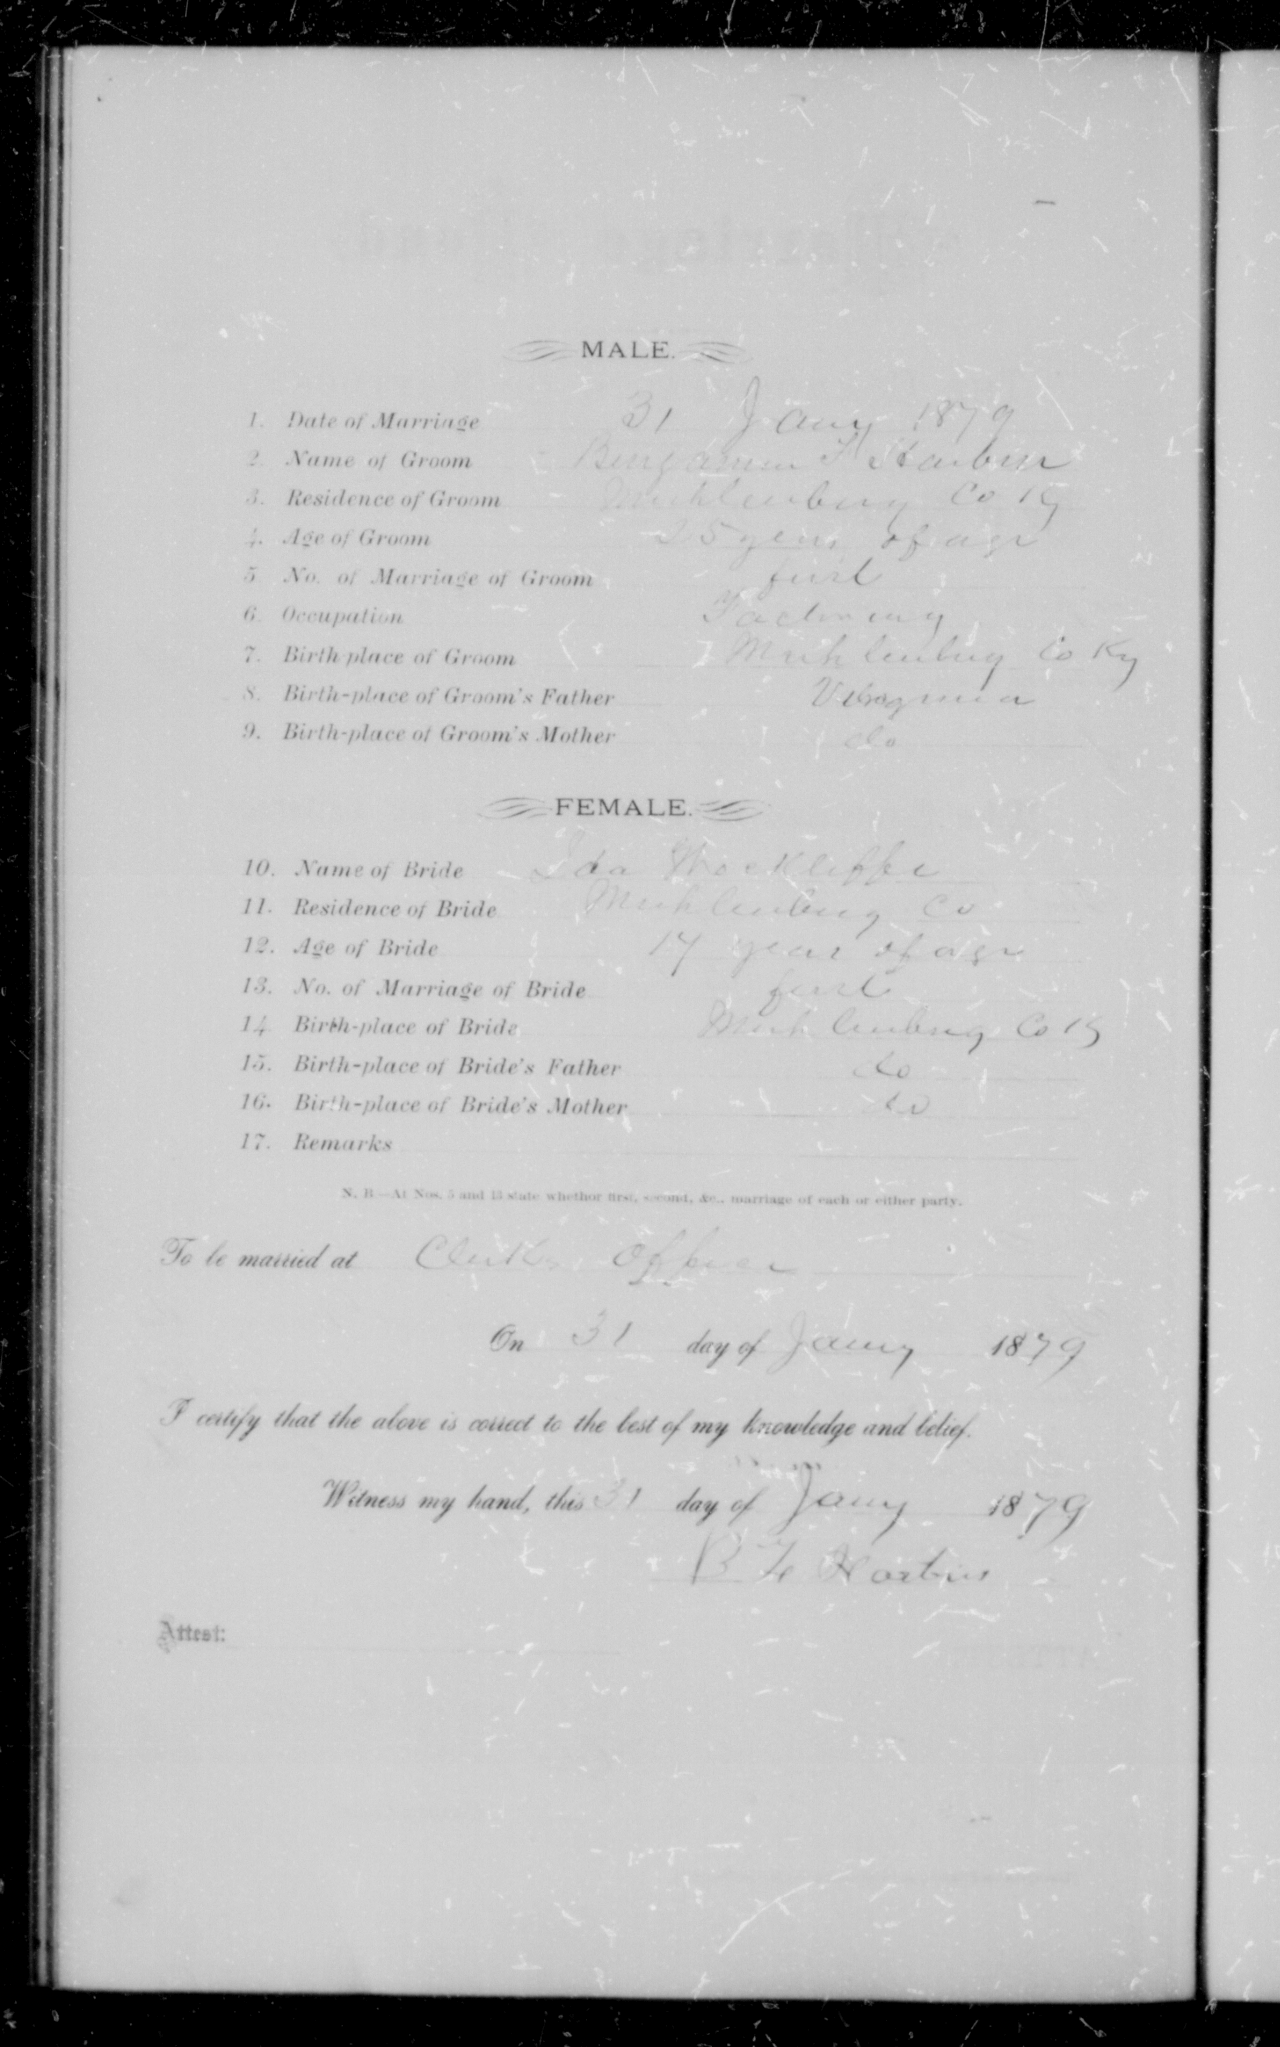 MALE.
1. Date of Marriage 31 Jany 1879
2. Name of Groom Benjamin F Harbin
3. Residence of Groom Muhlenburg Co Ky
4. Age of Groom 25 years of age
5 No. of Marriage of Groom first
6. Occupation
7. Birth place of Groom Muhlenburg Co Ky
8. Birth-place of Groom's Father Virginia
9. Birth-place of Groom's Mother do
FEMALE.
10. Name of Bride Ida
11. Residence of Bride Muhlenburg Co
12. Age of Bride year of age
13. No. of Marriage of Bride first
14 Birth-place of Bride Muhlenburg Co Ky
15. Birth-place of Bride's Father do
16. Birth-place of Bride's Mother do
17. Remarks
N. B—At Nos. 5 and 13 state whethor first, second, &c., marriage of each or either party.
To be married at Clerks Office
On 31 day of Jany 1879
I certify that the above is correct to the best of my knowledge and belief.
Witness my hand, this 31 day of Jany 1879
B F Harbin
Attest: